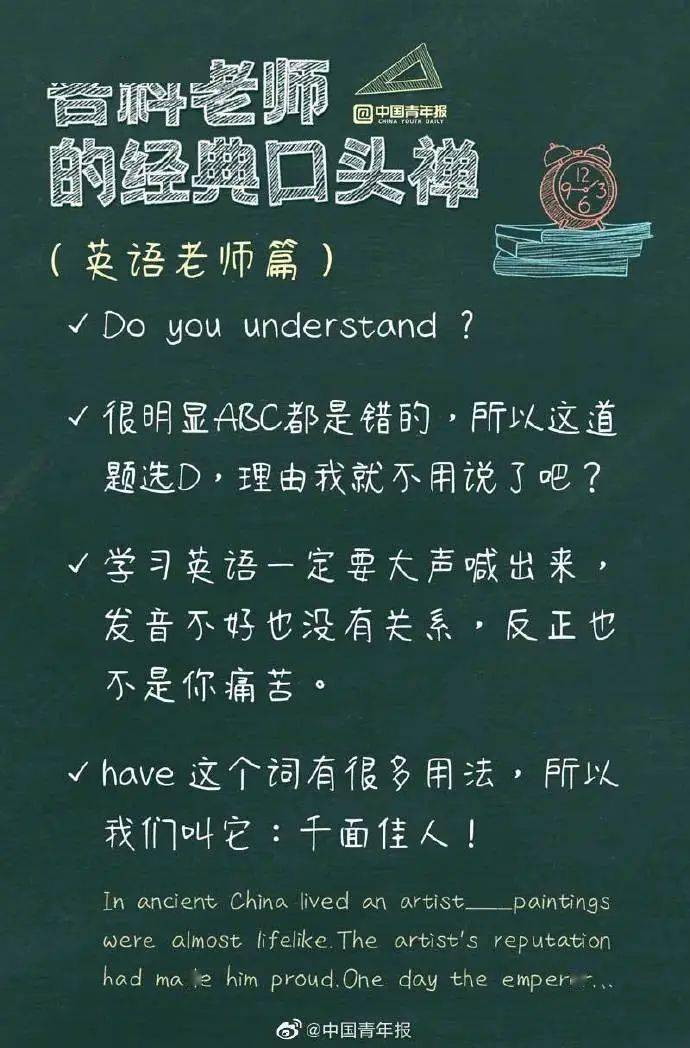 各科老师
@中国青年报
CHINA YOUTH DAILY
的经典口头禅
12
9 3
6
(英语老师篇)
✓ Do you understand ?
✓ 很明显ABC都是错的，所以这道
题选D，理由我就不用说了吧？
✓ 学习英语一定要大声喊出来，
发音不好也没有关系，反正也
不是你痛苦。
✓ have 这个词有很多用法，所以
我们叫它：千面佳人！
In ancient China lived an artist____paintings
were almost lifelike.The artist's reputation
had made him proud.One day the emperor...
@中国青年报